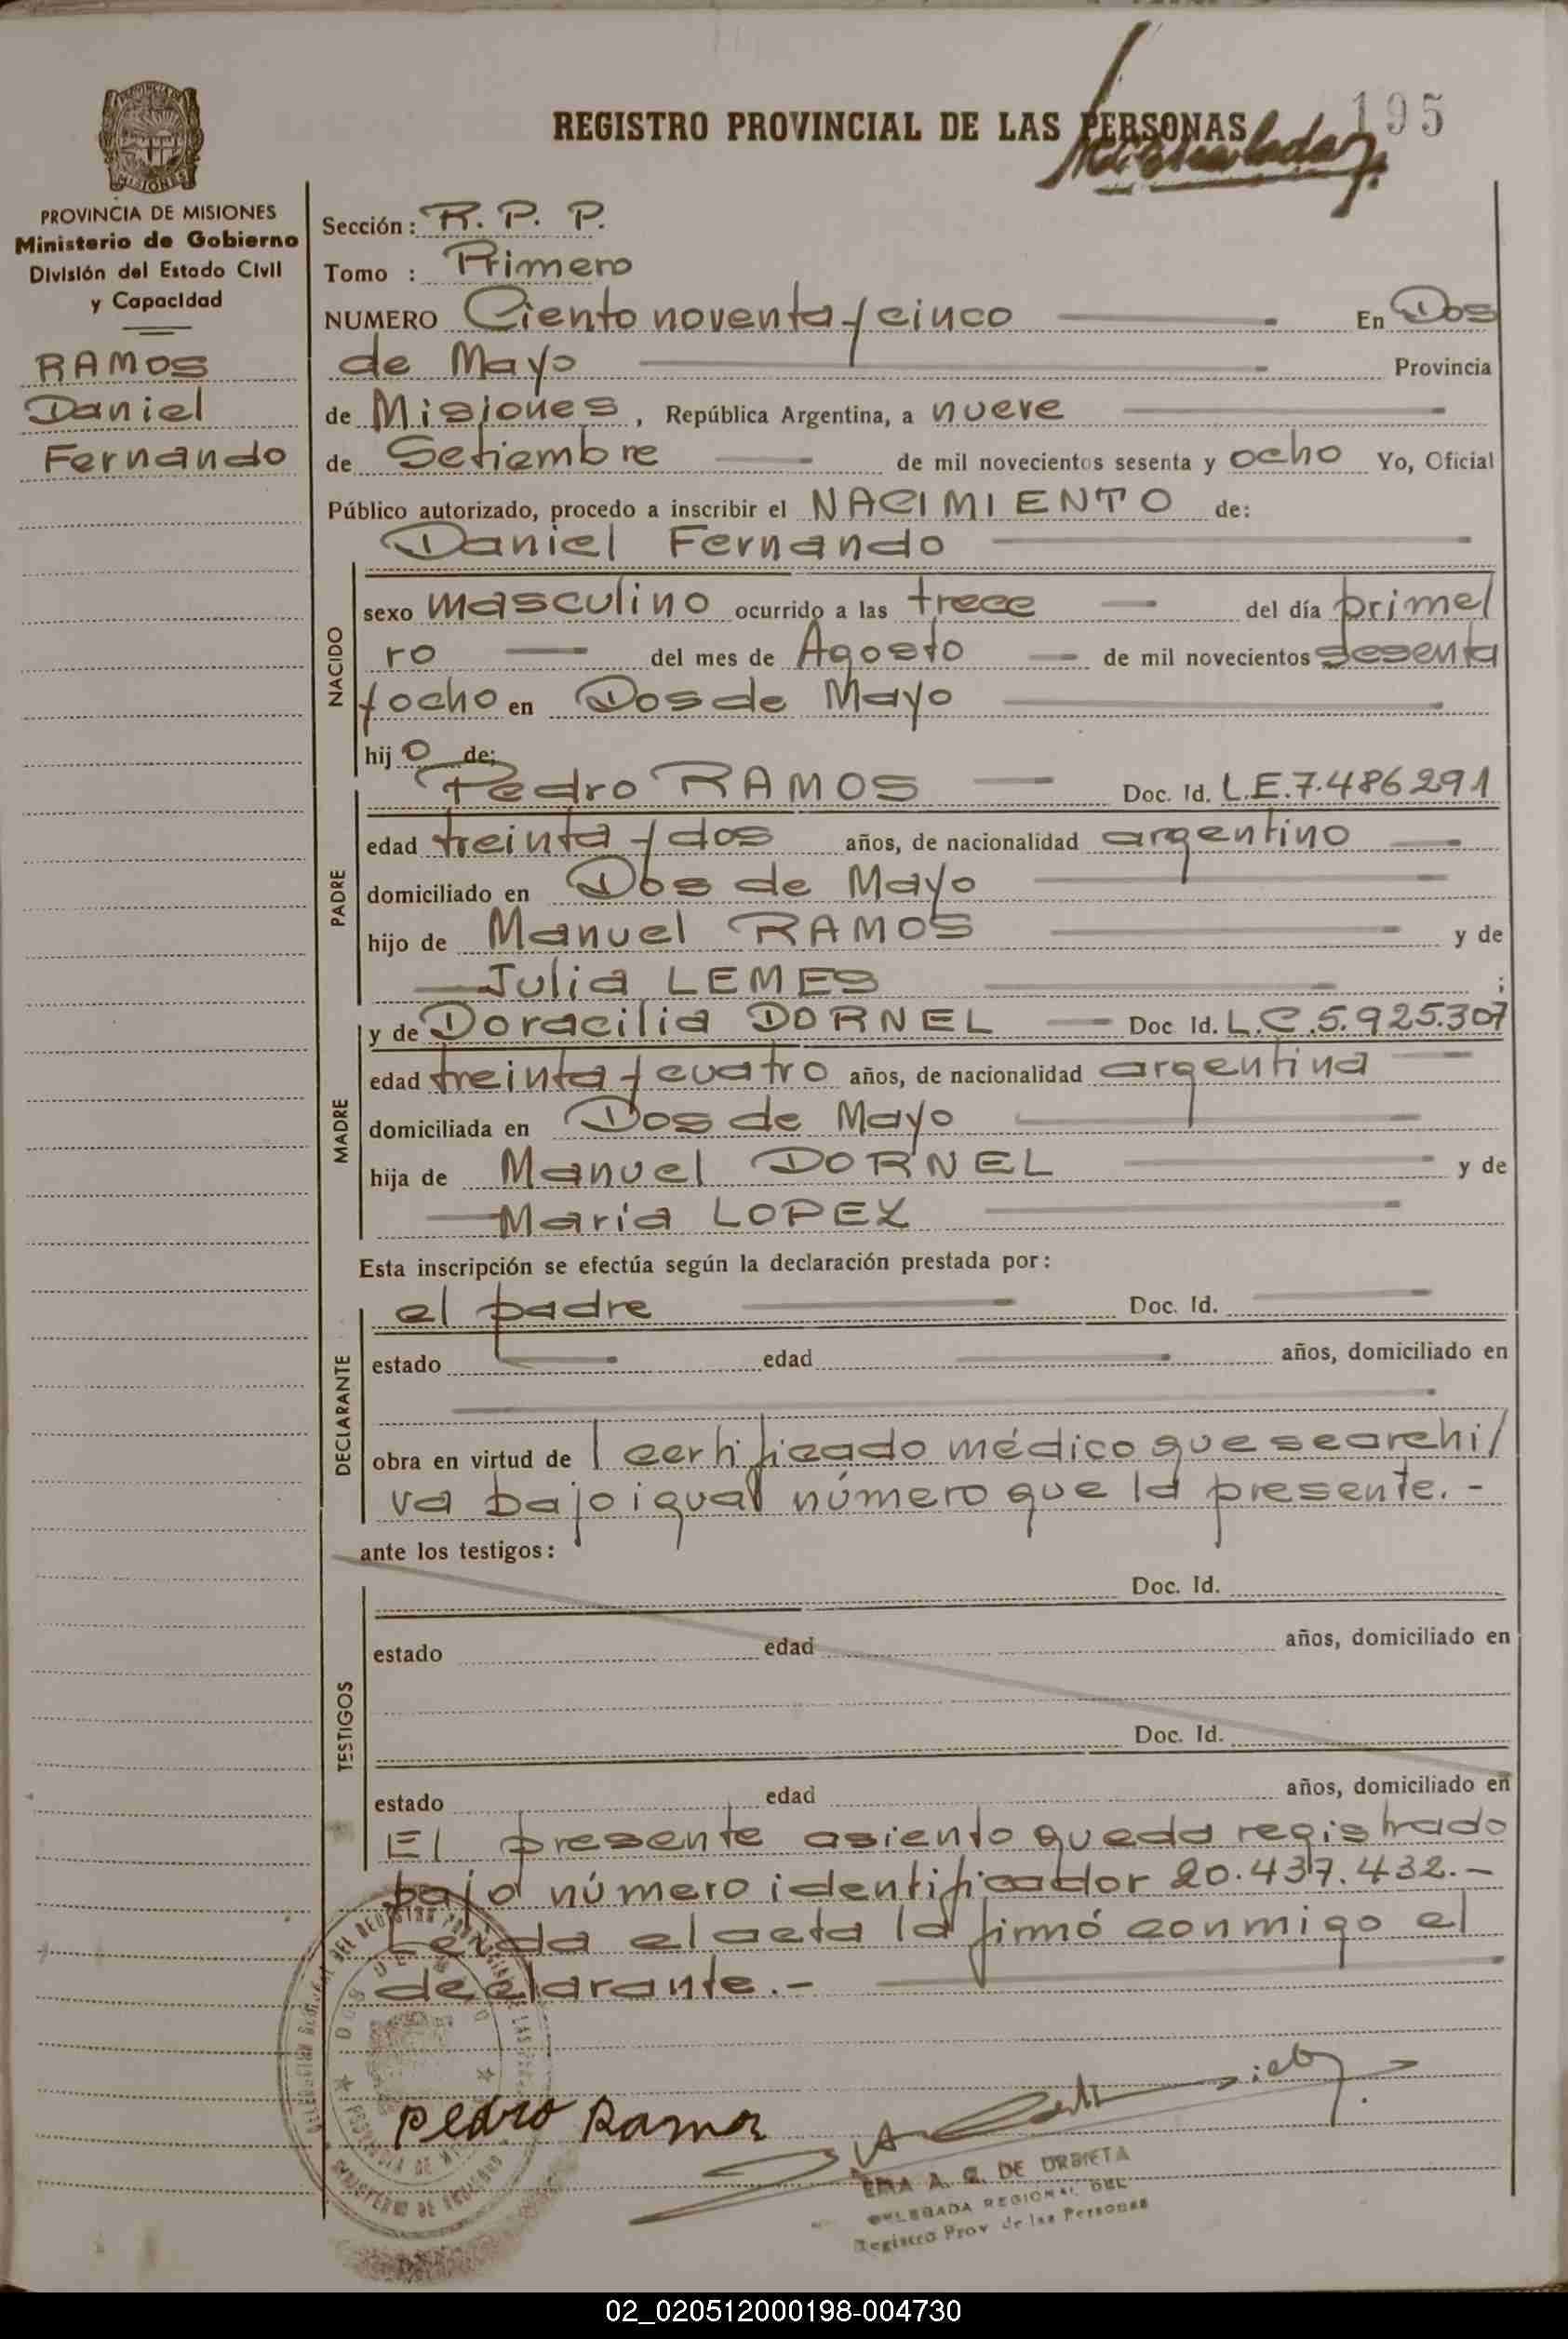 REGISTRO PROVINCIAL DE LAS PERSONAS 195
PROVINCIA DE MISIONES
Ministerio de Gobierno
División del Estado Civil
y Capacidad
RAMOS
Daniel
Fernando
Sección: R. P. P.
Tomo : Primero
NUMERO Ciento noventa y cinco En Dos
de Mayo Provincia
de Misiones, República Argentina, a nueve
de Setiembre de mil novecientos sesenta y ocho Yo, Oficial
Público autorizado, procedo a inscribir el NACIMIENTO de:
Daniel Fernando
NACIDO
sexo masculino ocurrido a las trece del día prime/
ro del mes de Agosto de mil novecientos sesenta
y ocho en Dos de Mayo
hijo de;
PADRE
Pedro RAMOS Doc. Id. L.E.7.486291
edad treinta y dos años, de nacionalidad argentino
domiciliado en Dos de Mayo
hijo de Manuel RAMOS y de
Julia LEMES ;
MADRE
y de Doracilia DORNEL Doc Id. L.C.5.925.307
edad treinta y cuatro años, de nacionalidad argentina
domiciliada en Dos de Mayo
hija de Manuel DORNEL y de
María LOPEZ
Esta inscripción se efectúa según la declaración prestada por:
DECLARANTE
el padre Doc. Id.
estado edad años, domiciliado en
obra en virtud de l certificado médico que se archi/
va bajo igual número que la presente.-
ante los testigos:
TESTIGOS
Doc. Id.
estado edad años, domiciliado en
Doc. Id.
estado edad años, domiciliado en
El presente asiento queda registrado
bajo número identificador 20.437.432.-
Leída el acta la firmó conmigo el
declarante.-
Pedro Ramos
A. G. DE URBIETA
DELEGADA REGIONAL DEL
Registro Prov de las Personas
02_020512000198-004730